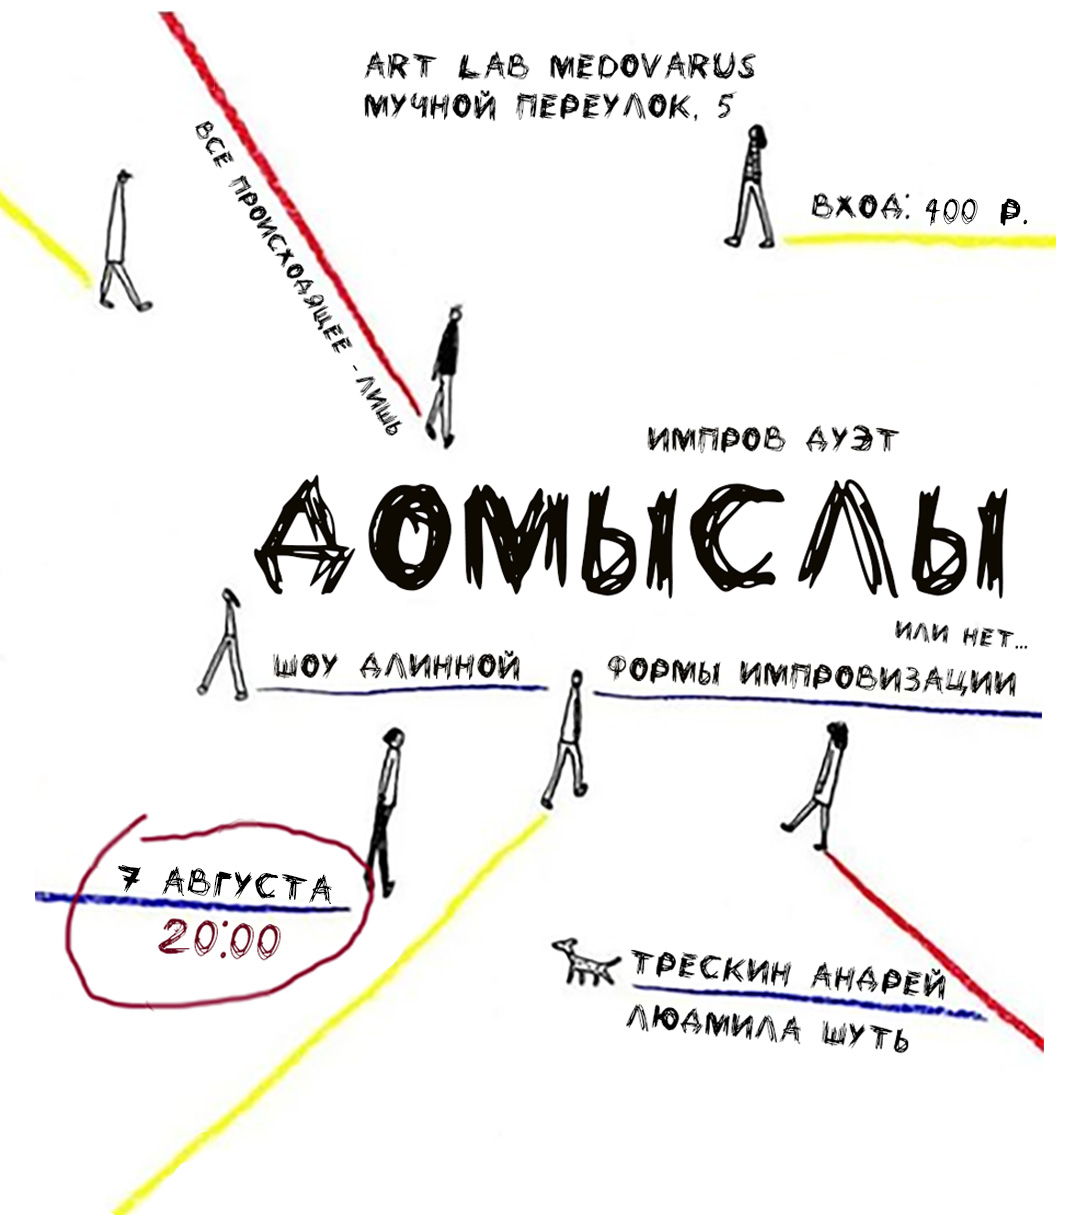 ART LAB MEDOVARUS
МУЧНОЙ ПЕРЕУЛОК, 5
ВХОД: 400 Р.
ВСЕ ПРОИСХОДЯЩЕЕ - ЛИШЬ
ИМПРОВ ДУЭТ
ДОМЫСЛЫ
ИЛИ НЕТ...
ШОУ ДЛИННОЙ ФОРМЫ ИМПРОВИЗАЦИИ
7 АВГУСТА
20:00
ТРЕСКИН АНДРЕЙ
ЛЮДМИЛА ШУТЬ